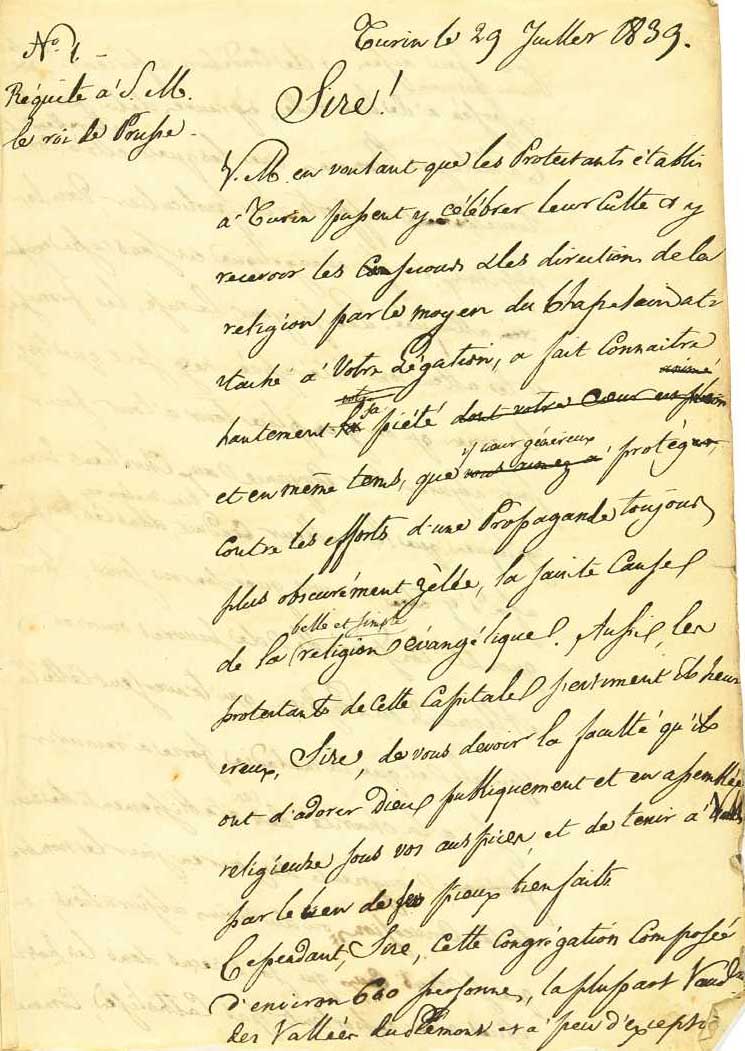 Nº 1.
Turin le 29 Juillet 1839.
Réquête à S. M.
le roi de Prusse.
Sire!
V. M. en voulant que les Protestants établis
à Turin pussent y célébrer leur culte & y
recevoir les secours & les directions de la
religion par le moyen du Chapelain at-
taché à Votre Légation, a fait connaitre
animé
hautement sa piété dont votre cœur
cœur généreux
et en même tems, que protéger,
contre les efforts d'une Propagande toujours
plus obscurément zèlée, la sainte Cause
belle et simple
de la religion évangélique. Aussi, les
protestants de cette Capitale s'estiment ils heu-
reux, Sire, de vous devoir la faculté qu'ils
ont d'adorer Dieu publiquement et en assemblée
religieuse sous vos auspices, et de tenir à
par le lien de pieux bienfaits.
Cependant, Sire, cette congrégation composée
d'environ 600 personnes, la pluspart Vaudois
des Vallées du Piémont et à peu d'excepti